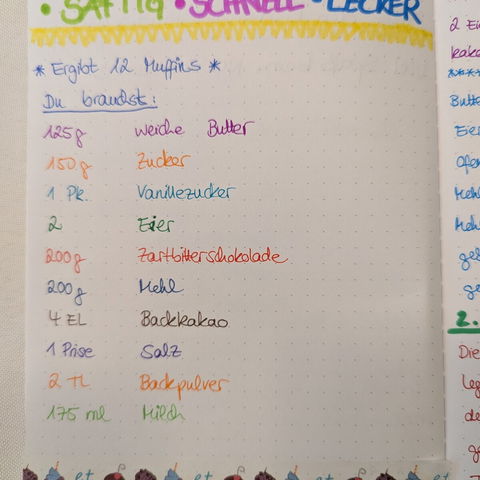 • SAFTIG • SCHNELL • LECKER
* Ergibt 12 Muffins *
Du brauchst:
125g weiche Butter
150g Zucker
1 Pk. Vanillezucker
2 Eier
200g Zartbitterschokolade
200g Mehl
4 EL Backkakao
1 Prise Salz
2 TL Backpulver
175 ml Milch
2 Ei
kaka
****
Butte
Eier
Ofen
Mehl
Mehl
ge
2.
Die